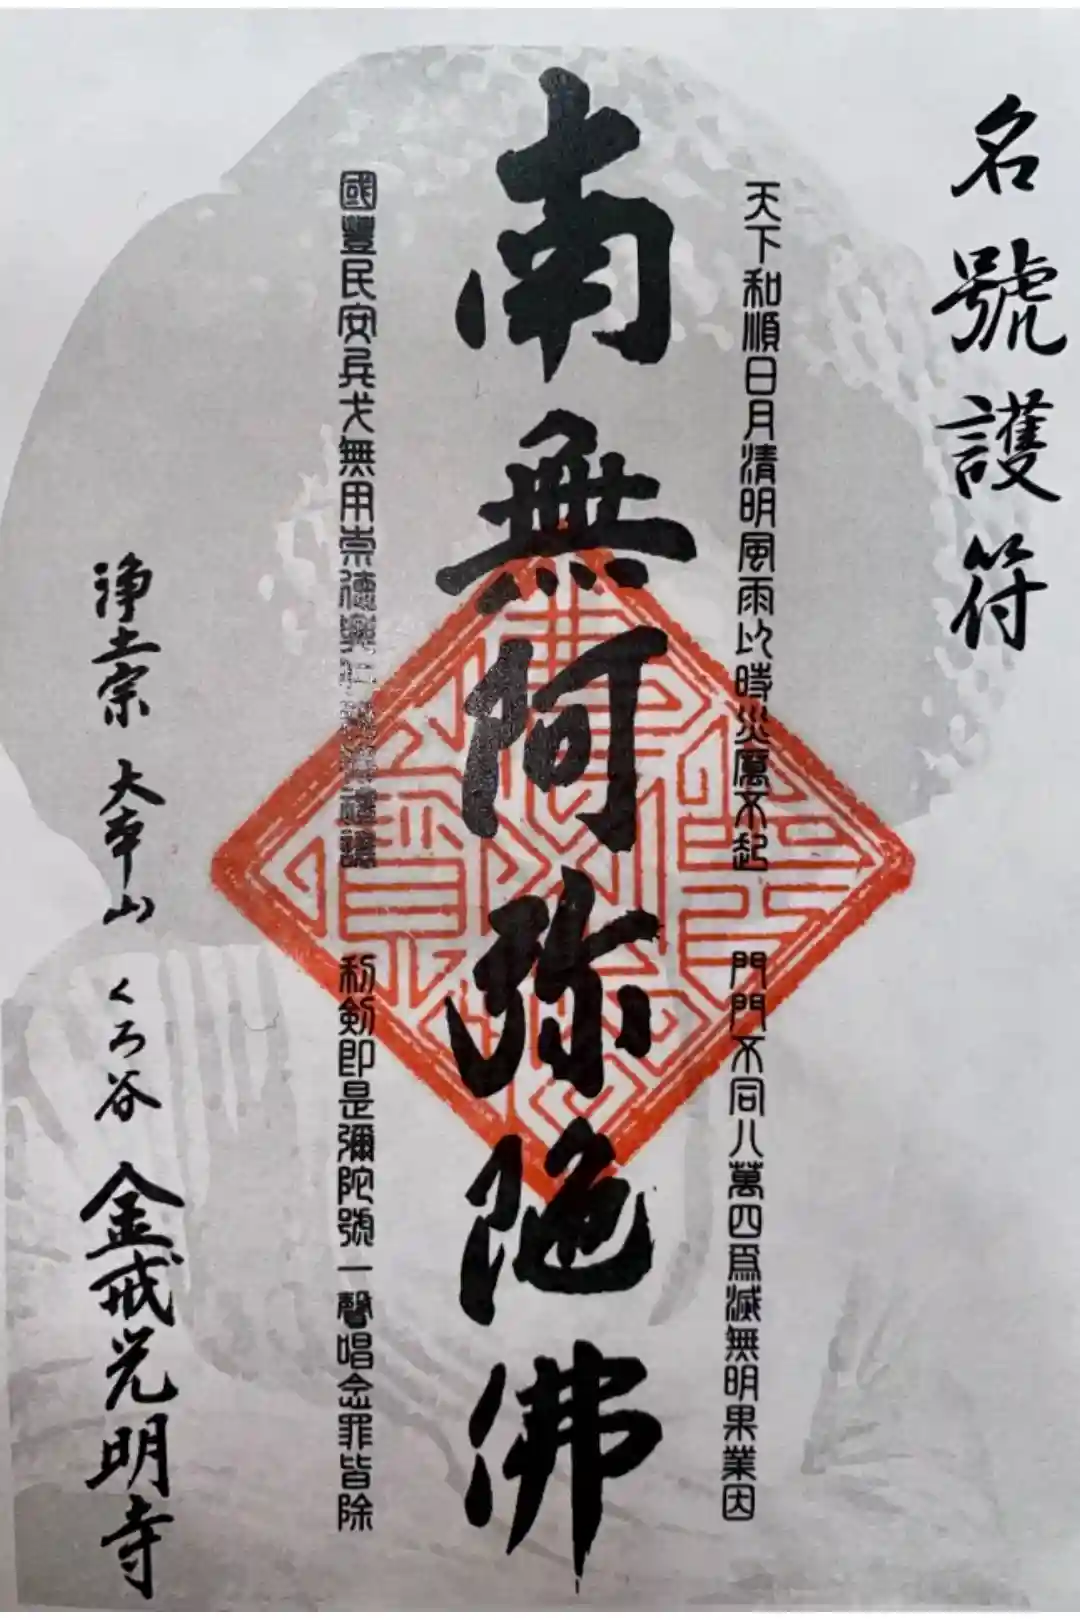 名號護符
天下和順日月清明風雨以時災厲不起 門門不同八萬四爲滅無明果業因
南無阿弥陀佛
國豐民安兵戈無用崇德興仁務修禮讓 利剣即是彌陀號一聲唱念罪皆除
浄土宗 大本山 くろ谷 金戒光明寺